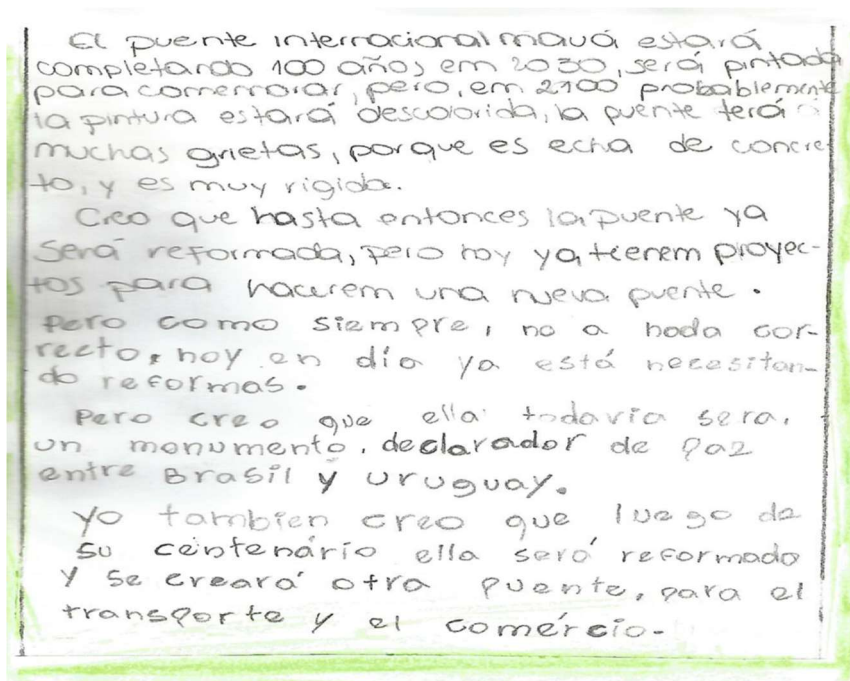 El puente internacional mauá estará
completando 100 años em 2030, será pintada
para comemorar, pero, em 2100 probablemente
la pintura estará descolorida, la puente terá
muchas grietas, porque es echa de concre
to, y es muy rigida.
Creo que hasta entonces la puente ya
será reformada, pero hoy ya tienem proyec-
tos para hacerem una nueva puente.
Pero como siempre, no a hoda cor-
recto, hoy en día ya está necesitan-
do reformas.
Pero creo que ella todavia sera,
un monumento, declarador de Paz
entre Brasil y Uruguay.
Yo tambien creo que luego de
su centenário ella será reformado
y se creará otra puente, para el
transporte y el comércio.